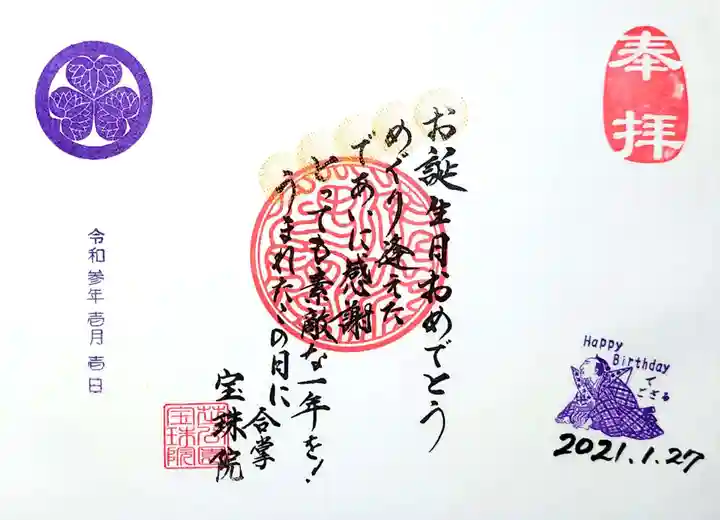 奉拝
お誕生日おめでとう
めぐり逢えた
であいに感謝
とっても素敵な一年を!
うまれたこの日に
合掌
宝珠院
芝公園
宝珠院
令和参年壱月壱日
Happy
Birthday
で
ござる
2021.1.27